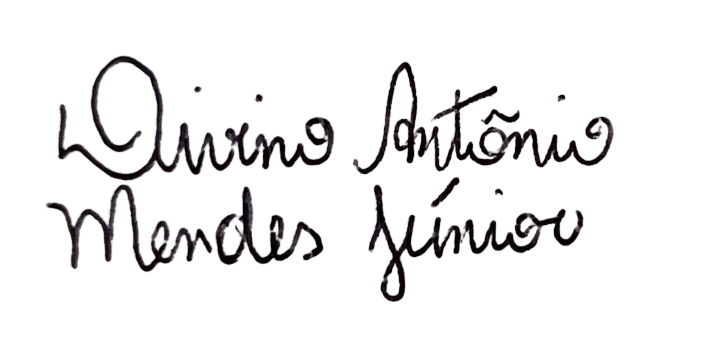 Divino Antônio
Mendes Júnior